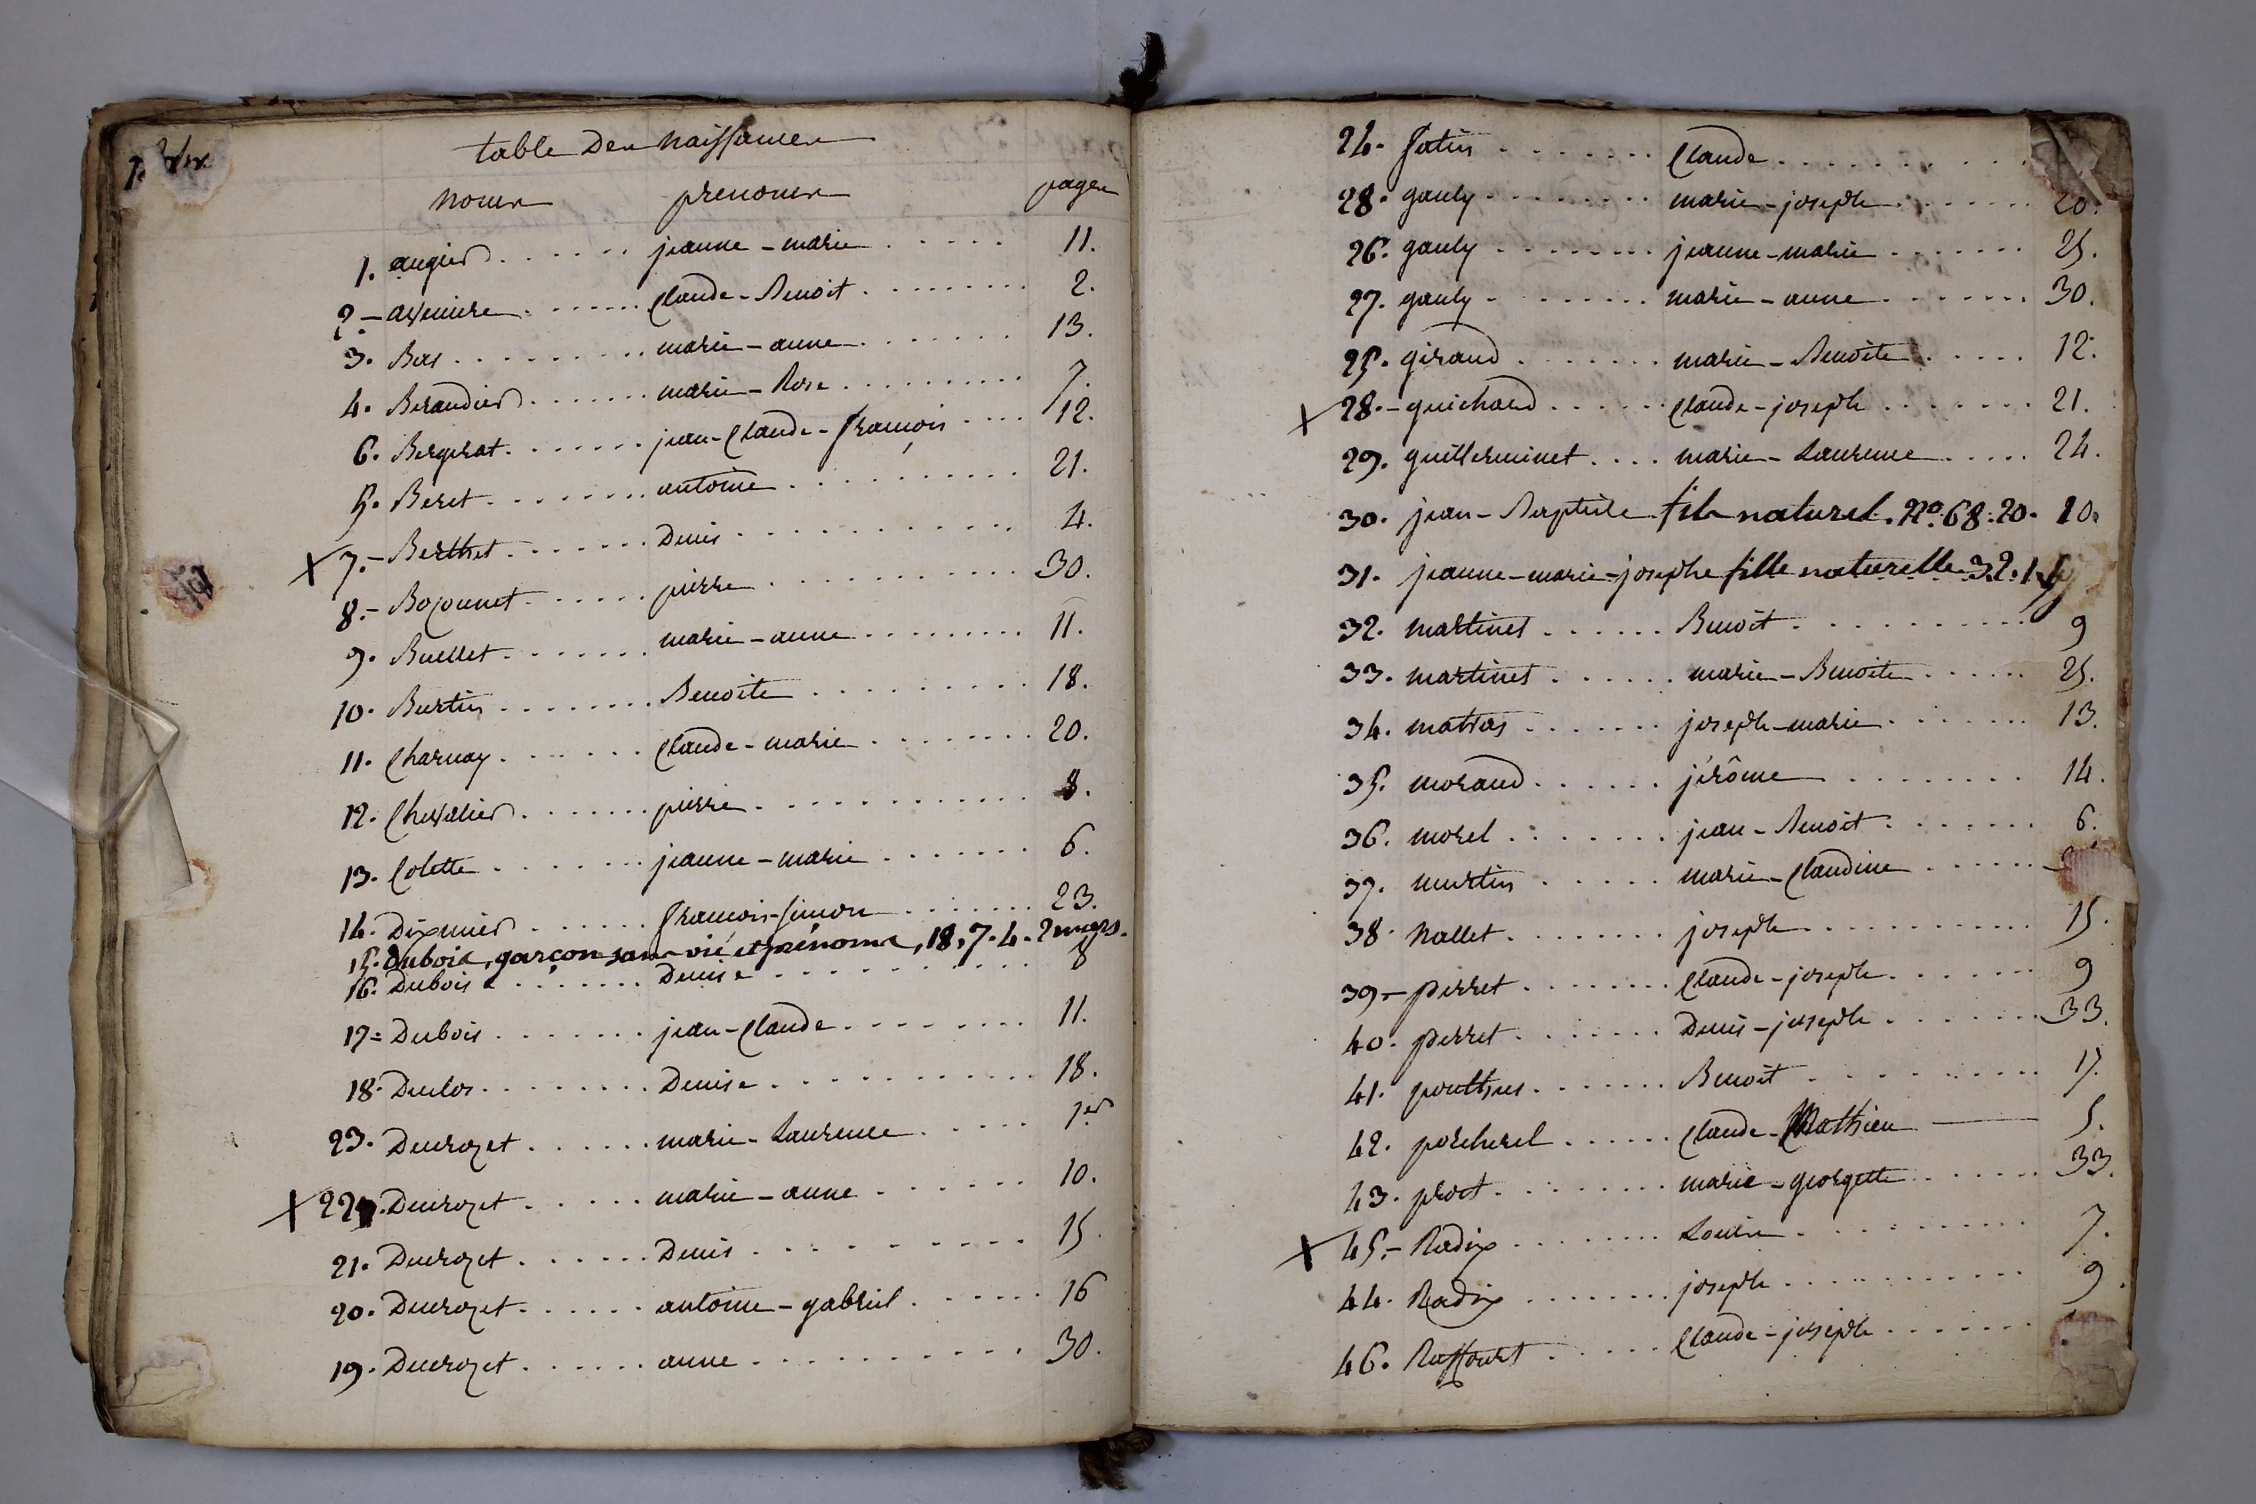 table Des naissances
noms prenoms pages
1. augier . . . . . . jeanne - marie . . . . . 11.
2 - aveniere . . . . . . Claude - Benoit . . . . . . . . 2.
3. Bas . . . . . . . . . marie - anne . . . . . . . 13.
4. Beraudier . . . . . . . marie - Rose . . . . . . . . . 7.
6. Bergerat . . . . . . . jean - Claude - françois . . . . 12.
5. Beret . . . . . . . . antoine . . . . . . . . . . 21.
X 7. - Berthet . . . . . . . Denis . . . . . . . . . . . . 4.
8. - Bozonnet . . . . . . pierre . . . . . . . . . . . 30.
9. Buellet . . . . . . . marie - anne . . . . . . . . . 11.
10. Burtin . . . . . . . . Benoite . . . . . . . . . 18.
11. Charnay . . . . . . . Claude - marie . . . . . . . . 20.
12. Chevalier . . . . . . . pierre . . . . . . . . . . . . 8.
13. Colette . . . . . . . jeanne - marie . . . . . . . 6.
14. Dixmier . . . . . . . françois-simon . . . . . . . 23.
15. Dubois, garçon sans vie et prénoms, 18, 7. 4. 2 mars.
16. Dubois . . . . . . . Denise . . . . . . . . . . 8
17 = Dubois . . . . . . . jean - Claude . . . . . . . . 11.
18. Duclos . . . . . . . . Denise . . . . . . . . . . . 18.
23. Ducrozet . . . . . . marie - Laurence . . . . . 1.er
X 22. Ducrozet . . . . . marie - anne . . . . . . 10.
21. Ducrozet . . . . . . Denis . . . . . . . . . 15.
20. Ducrozet . . . . . . antoine - gabriel . . . . . . 16
19. Ducrozet . . . . . . anne . . . . . . . . . . 30.
24. fatin . . . . . . . Claude . . . . . . . . .
28. gauly . . . . . . . . marie - joseph . . . . . . . 20.
26. gauly . . . . . . . . jeanne - marie . . . . . . . 25.
27. gauly . . . . . . . . marie - anne . . . . . . . 30.
25. giraud . . . . . . . marie - Benoite . . . . . 12.
X 28. - guichard . . . . . Claude - joseph . . . . . . . 21.
29. guillerminet . . . . marie - Laurence . . . . . 24.
30. jean - Baptiste fils naturel. No. 68. 20. 10.
31. jeanne - marie - josephe fille naturelle 32. 1.
32. martinet . . . . . . Benoit . . . . . . . . . . 9
33. martinet . . . . . . marie - Benoite . . . . . . 25.
34. matras . . . . . . . joseph - marie . . . . . . . 13.
35. moraud . . . . . . jérôme . . . . . . . . 14.
36. morel . . . . . . . jean - Benoit . . . . . . . 6.
37. murtin . . . . . marie - Claudine . . . . . .
38. nallet . . . . . . . joseph . . . . . . . . . . . 15.
39 = perret . . . . . . . Claude - joseph . . . . . . 9
40. perret . . . . . . . Denis - joseph . . . . . . . 33.
41. pouthus . . . . . . . Benoit . . . . . . . . . . 17.
42. porcherel . . . . . . Claude - Mathieu 5.
43. prost . . . . . . . . marie - georgette . . . . . . . 33.
X 45. - Radix . . . . . . . . Louise . . . . . . . . . . . 7.
44. Radix . . . . . . . . joseph . . . . . . . . . . . 9.
46. Raffourt . . . . . Claude - joseph . . . . . . .